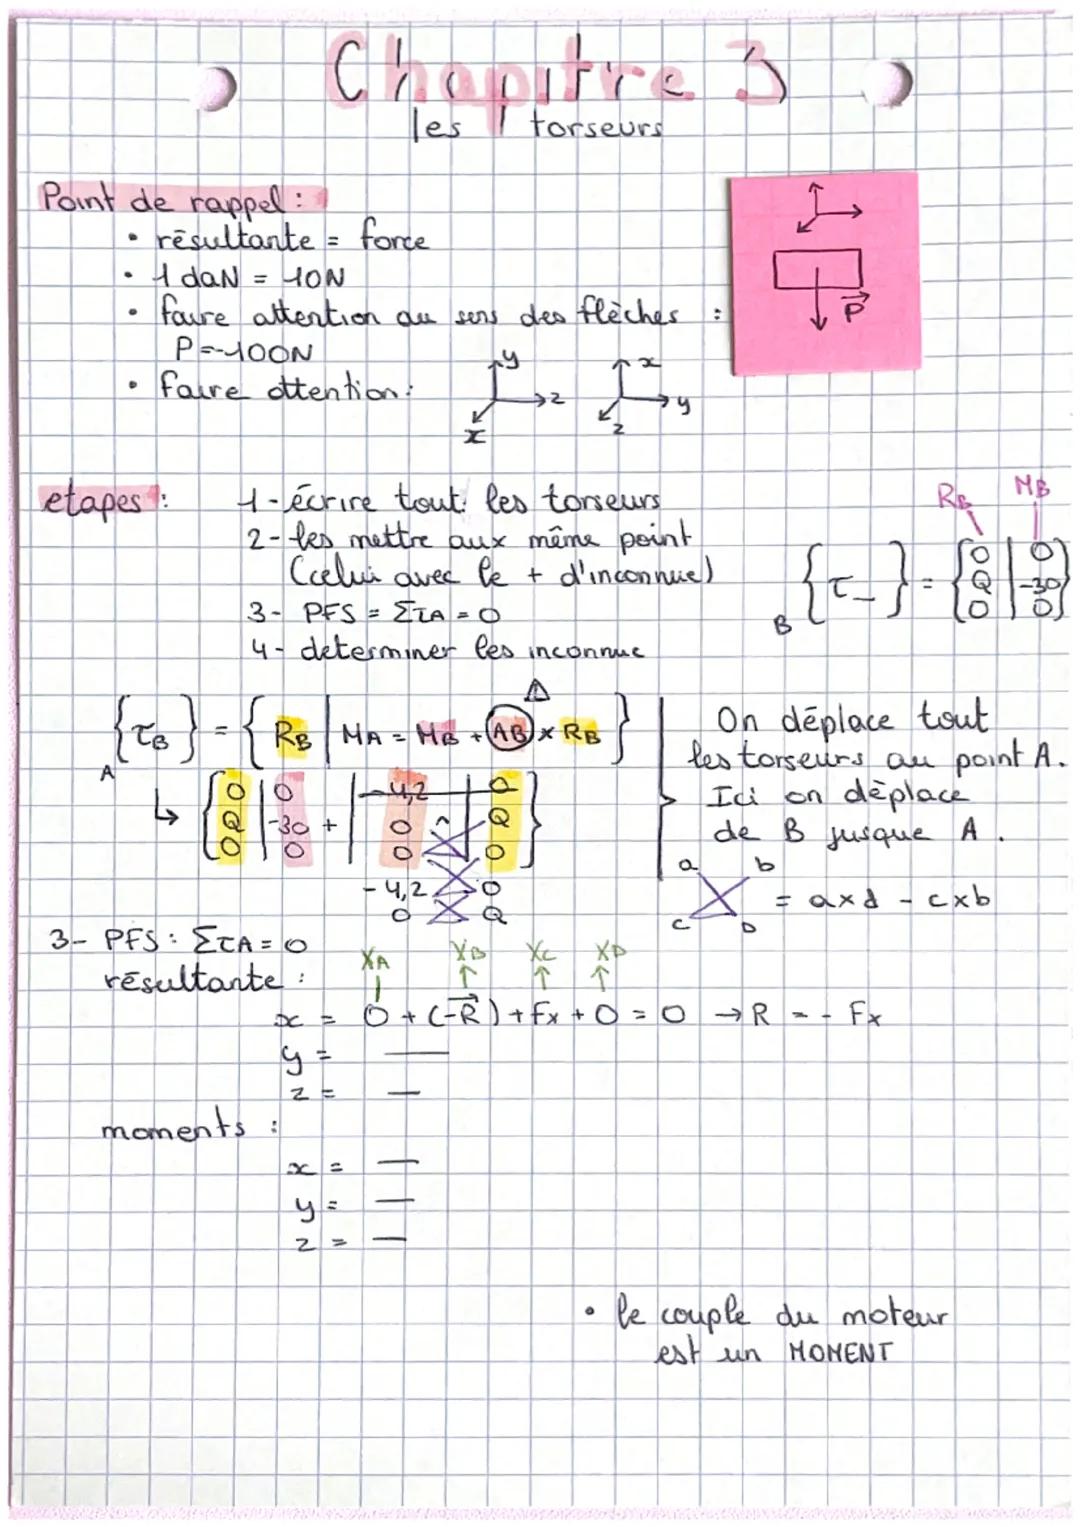 Chapitre 3
les torseurs
Point de rappel :
• résultante = force
• 1 daN = 10N
• faire attention au sens des flèches :
P=-100N
• faire attention :
y
z
x
x
y
z
P
etapes :
1 - écrire tout les torseurs
2 - les mettre aux même point
(celui avec le + d'inconnue)
3 - PFS = ΣτA = 0
4 - determiner les inconnue
RB MB
B {τ_} = {0 | 0
Q | -30
0 | 0}
A {τB} = {RB | MA = MB + AB × RB}
⚠
↳ {0 | 0 | -4,2 | 0
Q | -30 + | 0 ^ | Q
0 | 0 | 0 | 0}
-4,2 0
0 Q
On déplace tout
les torseurs au point A.
Ici on déplace
de B jusque A.
a b
c D
= a×d - c×b
3 - PFS : ΣτA = 0
résultante :
XA XB XC XD
x = 0 + (-R) + Fx + 0 = 0 → R = - Fx
y = —
z = —
moments :
x = —
y = —
z = —
• le couple du moteur
est un MOMENT